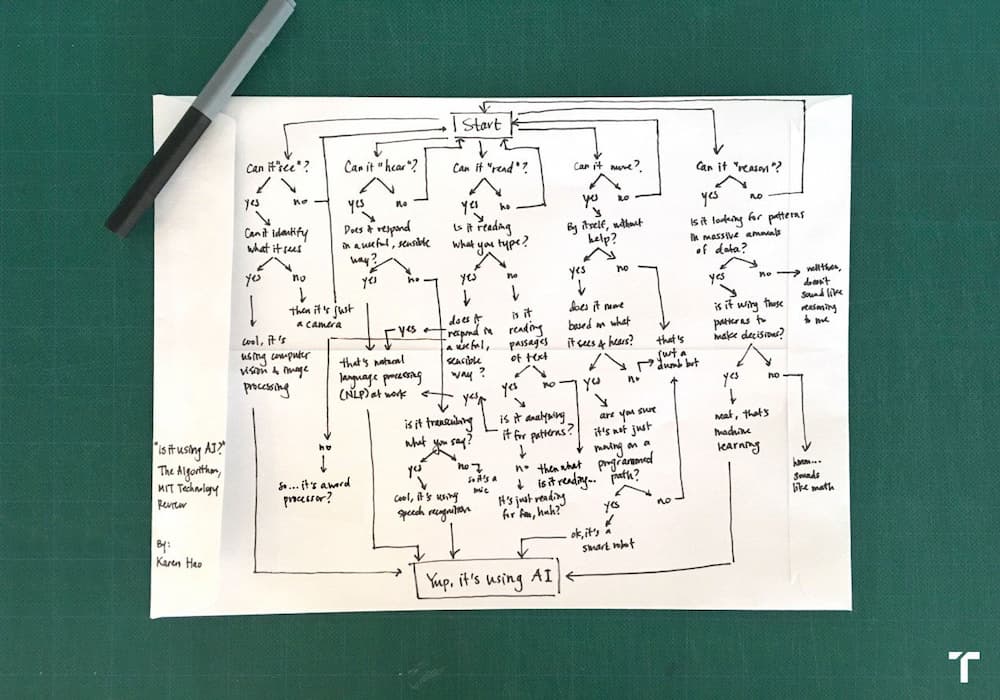 Start
Can it "see"?
yes
no
Can it identify
what it sees
yes
no
then it's just
a camera
cool, it's
using computer
vision & image
processing
Can it "hear"?
yes
no
Does it respond
in a useful, sensible
way?
yes
no
that's natural
language processing
(NLP) at work
is it transcribing
what you say?
yes
no
so it's a
mic
cool, it's using
speech recognition
Can it "read"?
yes
no
Is it reading
what you type?
yes
no
does it
respond in
a useful,
sensible
way?
yes
no
so... it's a word
processor?
is it
reading
passages
of text
yes
no
then what
is it reading...
is it analyzing
it for patterns?
yes
no
it's just reading
for fun, huh?
Can it move?
yes
no
By itself, without
help?
yes
no
does it move
based on what
it sees & hears?
yes
no
that's
just a
dumb bot
are you sure
it's not just
moving on a
programmed
path?
yes
no
ok, it's a
smart robot
Can it "reason"?
yes
no
Is it looking for patterns
in massive amounts
of data?
yes
no
well then,
doesn't
sound like
reasoning
to me
is it using those
patterns to
make decisions?
yes
no
neat, that's
machine
learning
hmm...
sounds
like math
Yup, it's using AI
"Is it using AI?"
The Algorithm,
MIT Technology
Review
By:
Karen Hao